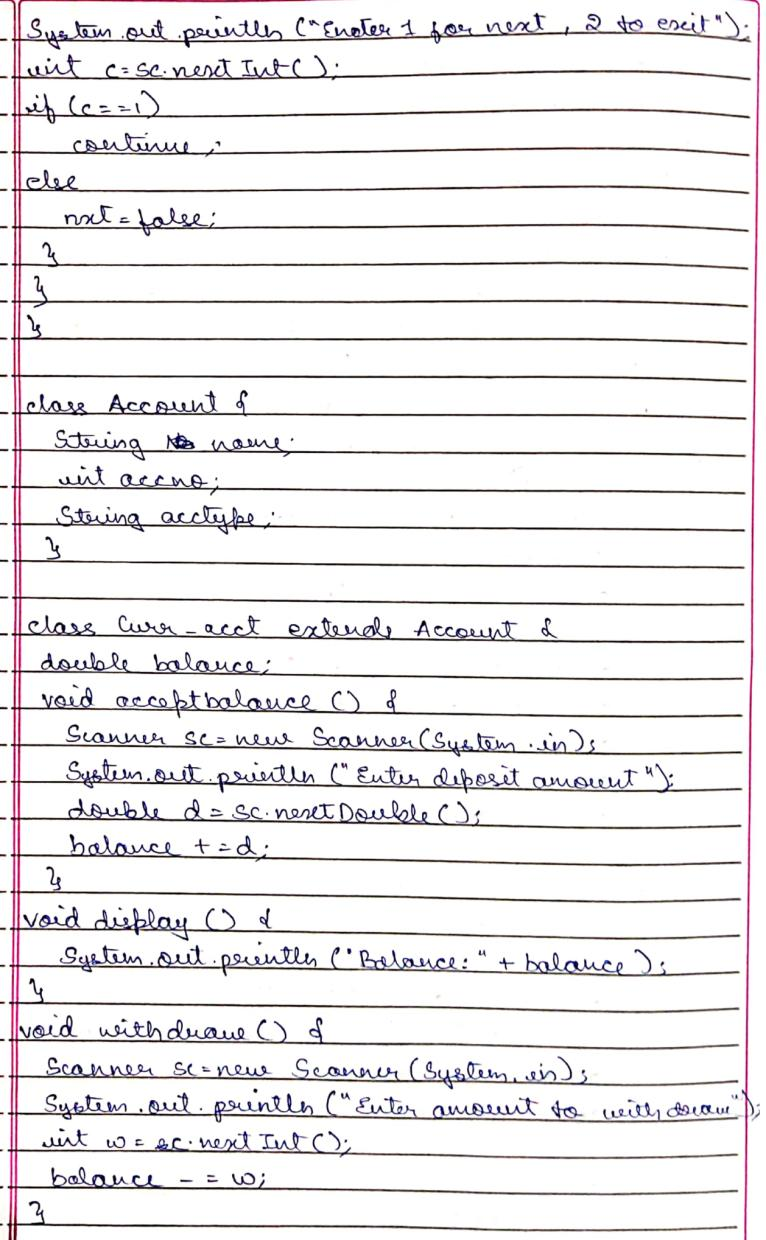 System.out.println ("Enter 1 for next, 2 to exit");
int c = sc.nextInt();
if (c==1)
continue;
else
nxt = false;
}
}
}
class Account {
String name;
int accno;
String acctype;
}
class Curr-acct extends Account {
double balance;
void acceptbalance () {
Scanner sc = new Scanner(System.in);
System.out.println ("Enter deposit amount");
double d = sc.nextDouble();
balance += d;
}
void display () {
System.out.println ("Balance:" + balance);
}
void withdraw () {
Scanner sc = new Scanner (System.in);
System.out.println ("Enter amount to withdraw");
int w = sc.nextInt();
balance -= w;
}